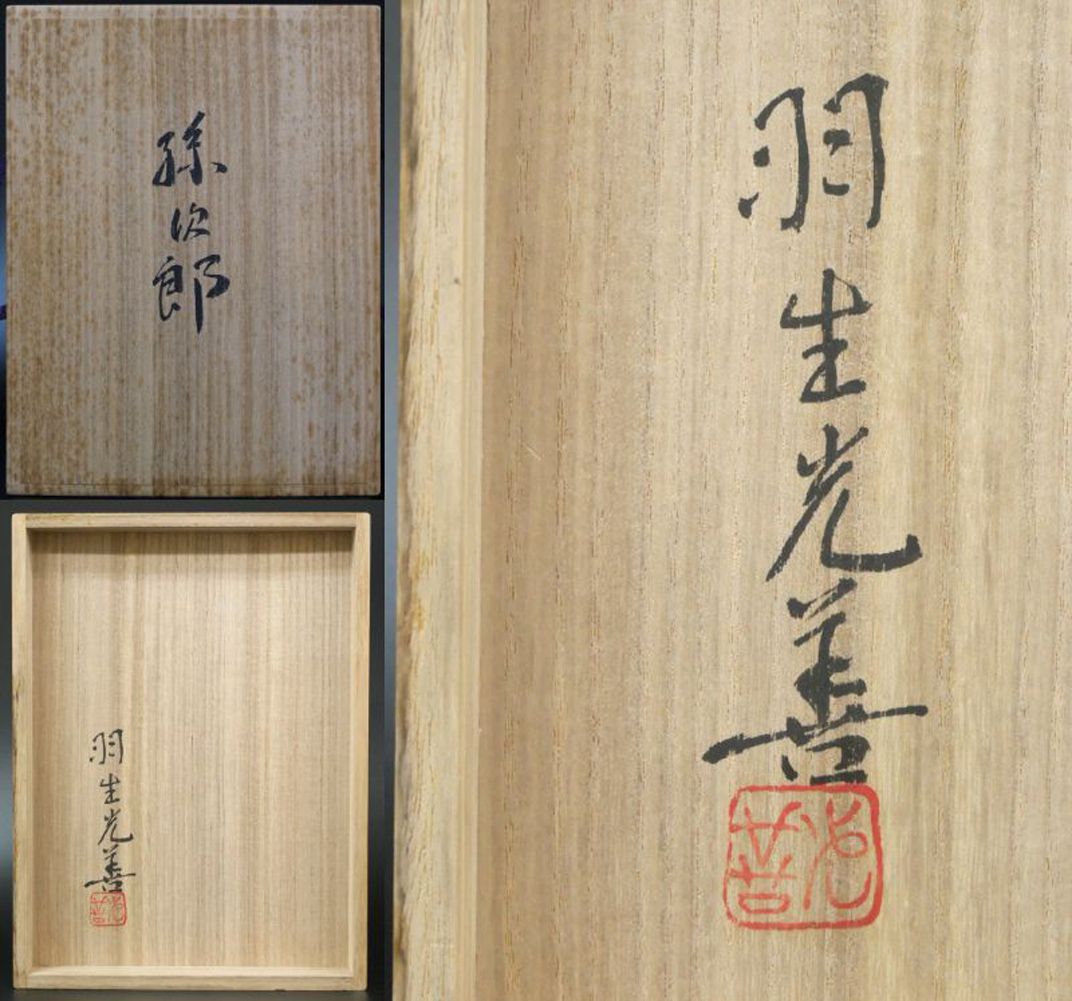 孫次郎
羽生光善
光善
羽生光善
光善